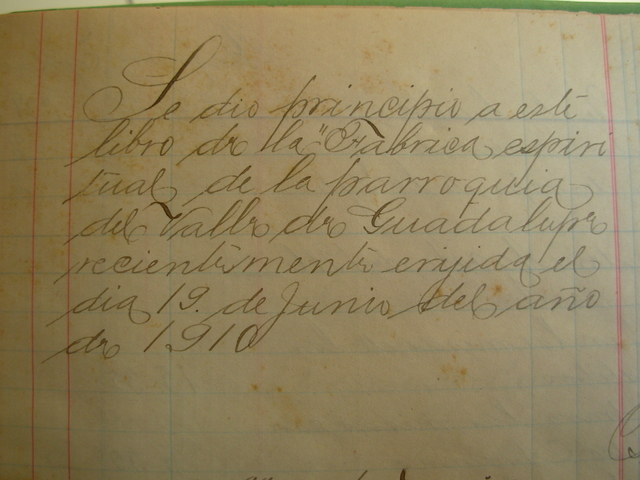 Se dio principio a este
libro de la "Fabrica espiri
tual de la parroquia
del Valle de Guadalupe
recientemente erijida el
dia 19. de Junio del año
de 1910